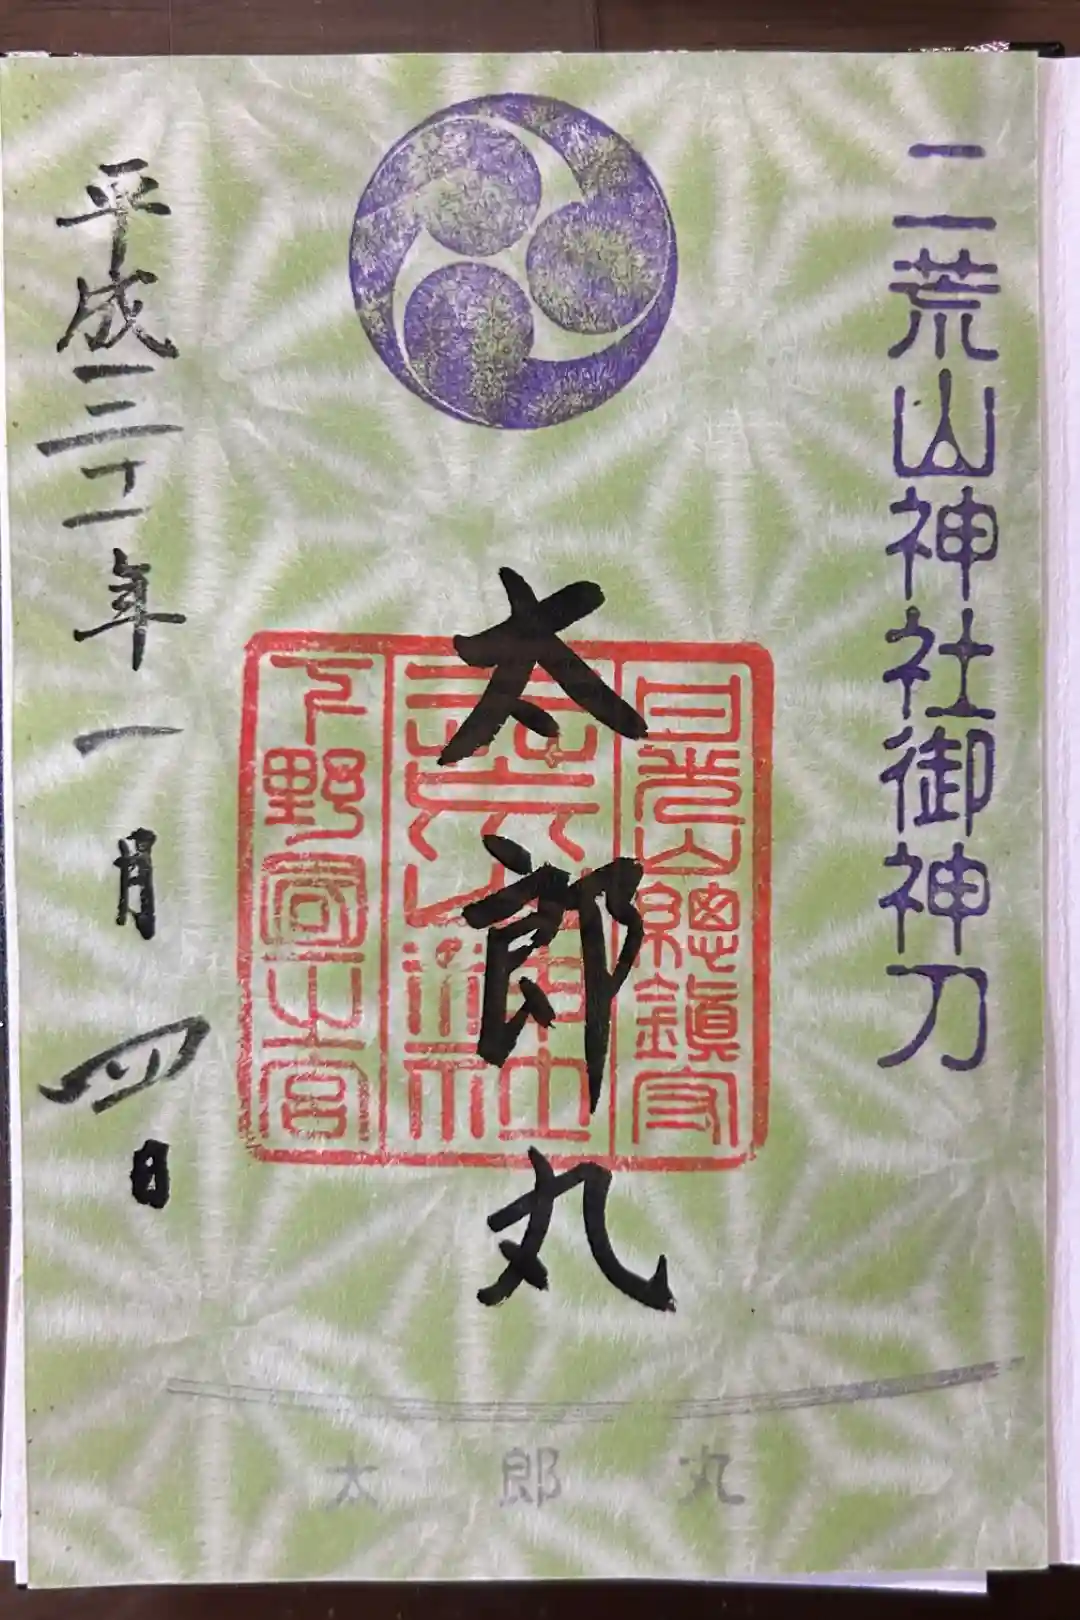 二荒山神社御神刀
日光山總鎮守
下野國一之宮
太郎丸
平成三十一年一月四日
太郎丸